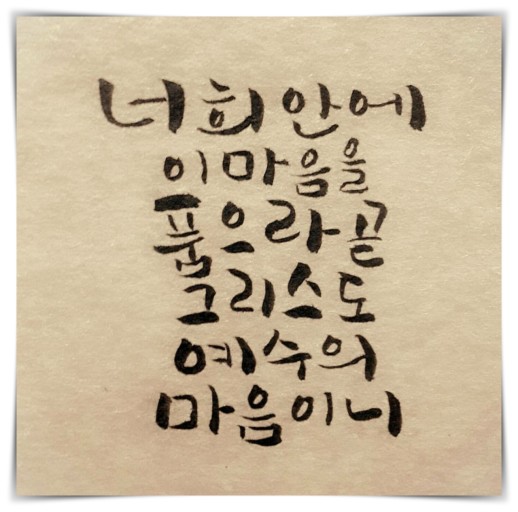 너희 안에
이 마음을
품으라 곧
그리스도
예수의
마음이니